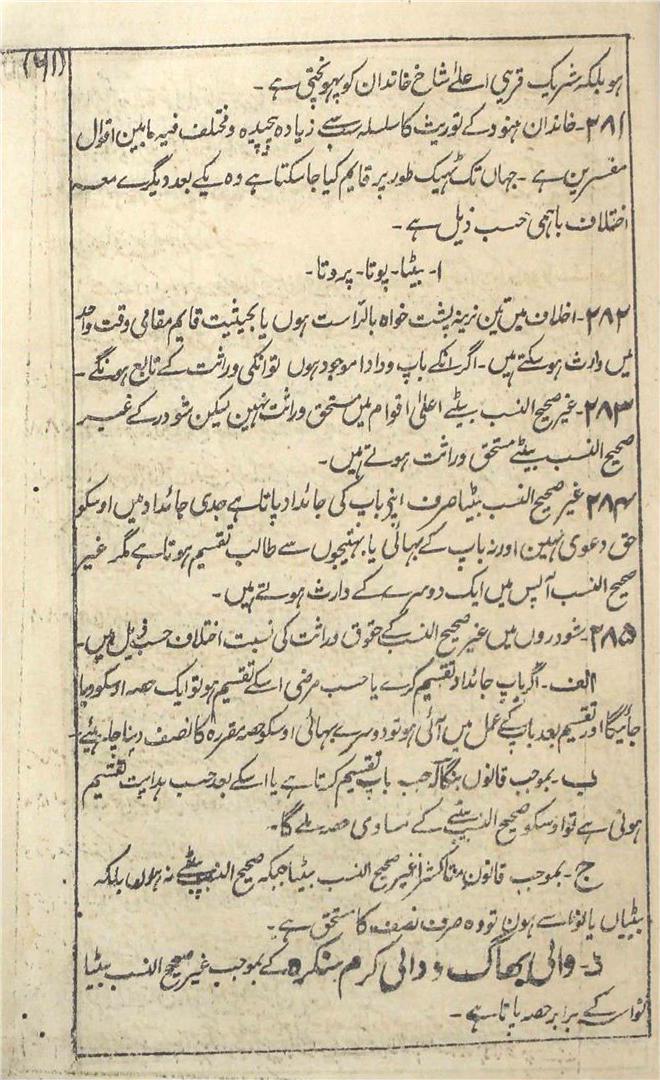 (۶۱)
ہو بلکہ شریک قریبی اعلےٰ شاخ خاندان کو پہونچتی ہے۔
۲۸۱۔ خاندان ہنود کے توریث کا سلسلہ سب سے زیادہ پیچیدہ و مختلف فیہ مابین اقوال
مفسرین ہے۔ جہاں تک ٹھیک طور پر قایم کیا جا سکتا ہے وہ یکے بعد دیگرے معہ
اختلاف باہمی حسب ذیل ہے۔
۱۔ بیٹا۔ پوتا۔ پروتا۔
۲۸۲۔ اخلاف میں تین نرینہ پشت خواہ بالراست ہوں یا بحیثیت قایم مقامی وقت واحد
میں وارث ہو سکتے ہیں۔ اگر انکے باپ و دادا موجود ہوں تو انکی وراثت کے تابع ہونگے۔
۲۸۳۔ غیر صحیح النسب بیٹے اعلیٰ اقوام میں مستحق وراثت نہین لیکن شودر کے غیر
صحیح النسب بیٹے مستحق وراثت ہوتے ہیں۔
۲۸۴۔ غیر صحیح النسب بیٹا صرف اپنے باپ کی جائداد پاتا ہے جدی جائداد میں اوسکو
حق دعوی نہین اور نہ باپ کے بہائی یا بہتیجوں سے طالب تقسیم ہوتا ہے مگر غیر
صحیح النسب آپس میں ایک دوسرے کے وارث ہوتے ہیں۔
۲۸۵۔ شودروں میں غیر صحیح النسب کے حقوق وراثت کی نسبت اختلاف حسب ذیل ہیں۔
الف۔ اگر باپ جائداد تقسیم کرے یا حسب مرضی اسکے تقسیم ہو تو ایک حصہ اوسکو دیا
جائیگا اور تقسیم بعد باپ کے عمل میں آئی ہو تو دوسرے بہائی اوسکو حصہ مقررہ کا نصف دینا چاہیے۔
ب۔ بموجب قانون بنگالہ جب باپ تقسیم کرتا ہے یا اسکے بعد حسب ہدایت تقسیم
ہوتی ہے تو اوسکو صحیح النسب بیٹے کے مساوی حصہ ملے گا۔
ج۔ بموجب قانون متاکشرا غیر صحیح النسب بیٹا جبکہ صحیح النسب بیٹے نہ ہوں بلکہ
بیٹیاں یا نواسے ہوں تو وہ صرف نصف کا مستحق ہے۔
د۔ وائی ابھاگ و دائی کرم سنکرہ کے بموجب غیر صحیح النسب بیٹا
نواسہ کے برابر حصہ پاتا ہے۔